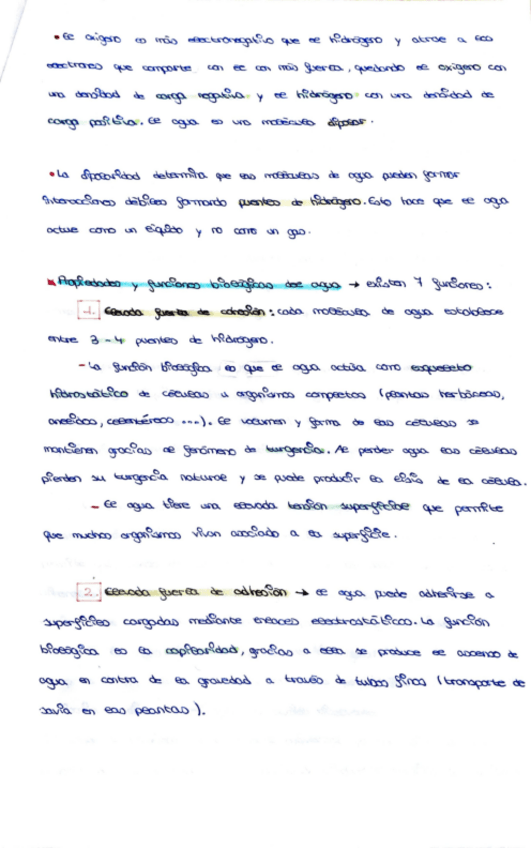 • El oxígeno es más electronegativo que el hidrógeno y atrae a los
electrones que comparte con él con más fuerza, quedando el oxígeno con
una densidad de carga negativa y el hidrógeno con una densidad de
carga positiva. El agua es una molécula dipolar.
• La dipolaridad determina que las moléculas de agua puedan formar
interacciones débiles formando puentes de hidrógeno. Esto hace que el agua
actúe como un líquido y no como un gas.
Propiedades y funciones biológicas del agua → existen 7 funciones:
1. Elevada fuerza de cohesión: cada molécula de agua establece
entre 3-4 puentes de hidrógeno.
- La función biológica es que el agua actúa como esqueleto
hidrostático de células u organismos completos (plantas herbáceas,
anélidos, celentéreos ...). El volumen y forma de las células se
mantienen gracias al fenómeno de turgencia. Al perder agua las células
pierden su turgencia natural y se puede producir la lisis de la célula.
- El agua tiene una elevada tensión superficial que permite
que muchos organismos vivan asociado a la superficie.
2. Elevada fuerza de adhesión → el agua puede adherirse a
superficies cargadas mediante enlaces electrostáticos. La función
biológica es la capilaridad, gracias a ella se produce el ascenso de
agua en contra de la gravedad a través de tubos finos (transporte de
savia en las plantas).